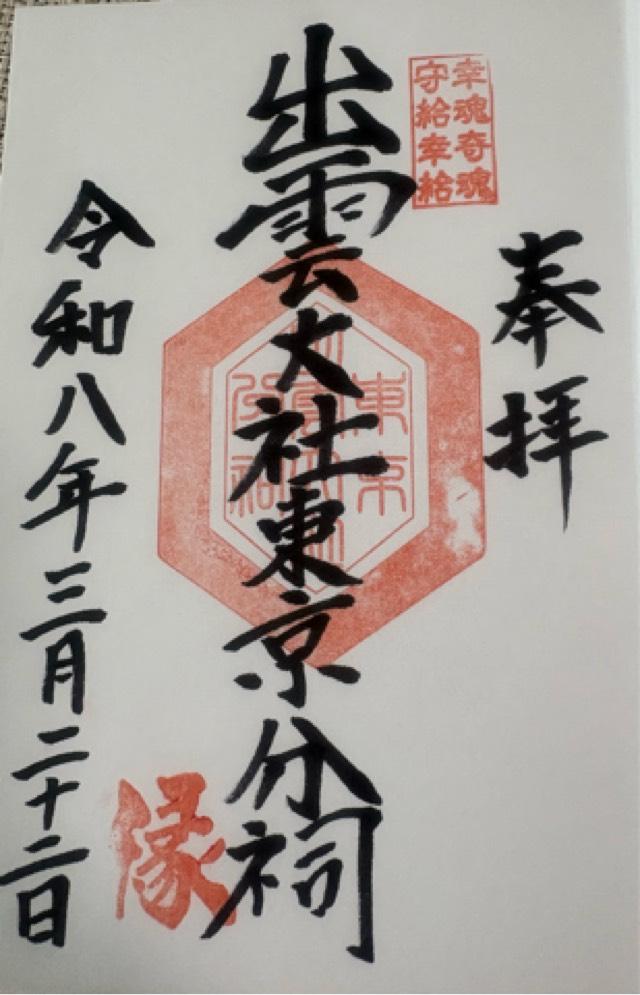 奉拝
幸魂奇魂
守給幸給
出雲大社東京分祠
東京
分祠
縁
令和八年三月二十二日